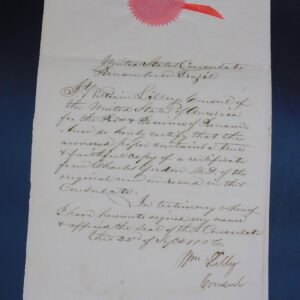 United States Consulate
Pernambuco Brazil
I, William Lilley, Consul of
the United States of America
for the Port & Province of Pernam-
buco do hereby certify that the
annexed paper contains a true
& faithful copy of a certificate
from Charles Gordon M.D. of the
original now in record in this
Consulate.
In testimony whereof
I have hereunto signed my name
& affixed the seal of this Consulate
this 23d of Sept
Wm Lilley
Consul